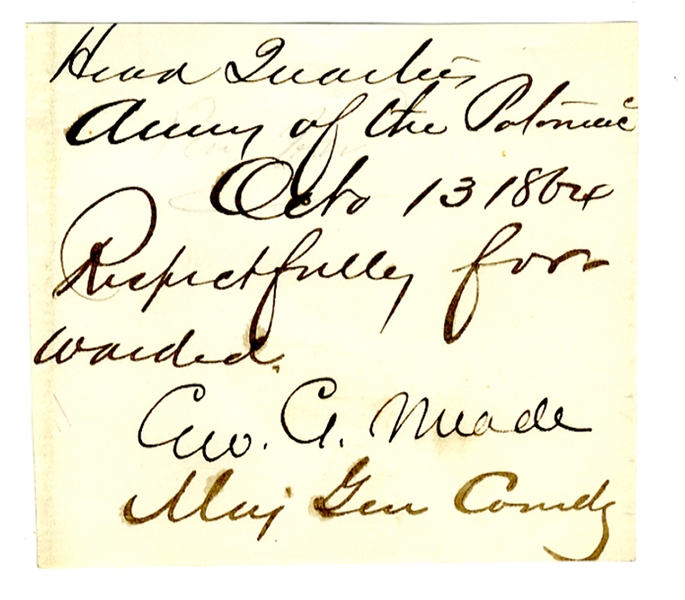 Head Quarters
Army of the Potomac
Octo 13 1864
Respectfully for
warded.
Geo. G. Meade
Maj Gen Comdg